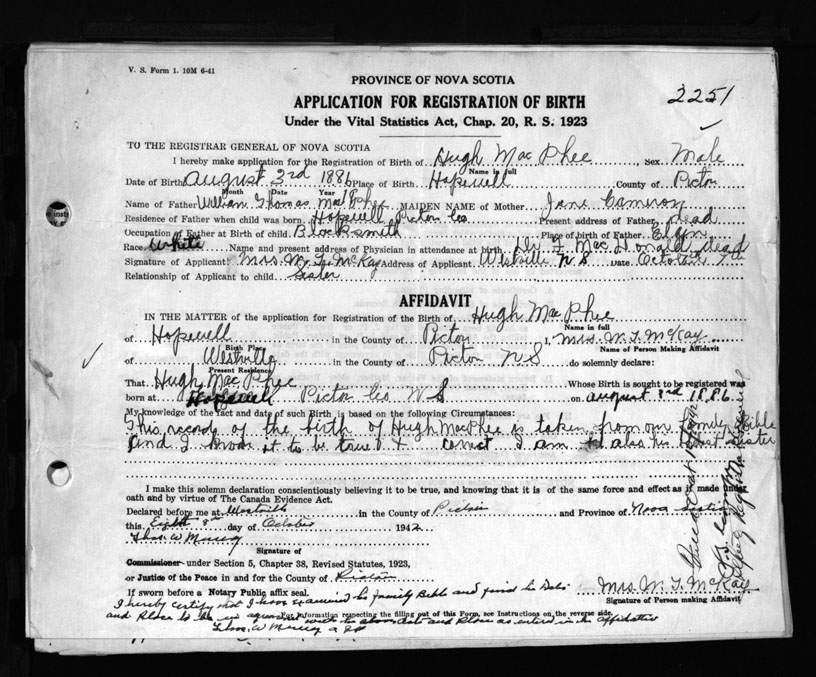 V. S. Form 1. 10M 6-41
PROVINCE OF NOVA SCOTIA
2251
APPLICATION FOR REGISTRATION OF BIRTH
Under the Vital Statistics Act, Chap. 20, R. S. 1923
TO THE REGISTRAR GENERAL OF NOVA SCOTIA
I hereby make application for the Registration of Birth of Hugh MacPhee Sex Male
Name in full
Date of Birth August 3rd 1886 Place of Birth Hopewell County of Pictou
Month Date Year
Name of Father William Thomas MacPhee MAIDEN NAME of Mother Jane Cameron
Residence of Father when child was born Hopewell Pictou Co Present address of Father dead
Occupation of Father at Birth of child Blacksmith Place of birth of Father Elgin
Race White Name and present address of Physician in attendance at birth Dr Mac Donald dead
Signature of Applicant Mrs. M. T. McKay Address of Applicant Westville N S Date October 7th
Relationship of Applicant to child Sister
AFFIDAVIT
IN THE MATTER of the application for Registration of the Birth of Hugh MacPhee
Name in full
of Hopewell in the County of Pictou I, Mrs. M. T. McKay
Birth Place Name of Person Making Affidavit
of Westville in the County of Pictou N S do solemnly declare:
Present Residence
That Hugh MacPhee Whose Birth is sought to be registered was
born at Hopewell Pictou Co N S on August 3rd 1886
My knowledge of the fact and date of such Birth is based on the following Circumstances:
This record of the birth of Hugh MacPhee is taken from our family Bible
and I know it to be true & correct I am also his oldest sister
I make this solemn declaration conscientiously believing it to be true, and knowing that it is of the same force and effect as if made under
oath and by virtue of The Canada Evidence Act.
Declared before me at Westville in the County of Pictou and Province of Nova Scotia
this Eighth day of October 1942
Thos. W Murray
Signature of
Commissioner under Section 5, Chapter 38, Revised Statutes, 1923,
or Justice of the Peace in and for the County of Pictou
If sworn before a Notary Public affix seal.
Mrs. M. T. McKay
Signature of Person making Affidavit
I hereby certify that I have examined the family Bible and find the Date
For information respecting the filling out of this Form, see Instructions on the reverse side.
and Place to be in agreement with the above date and Place as entered in the affidavit
Thos. W Murray a JP